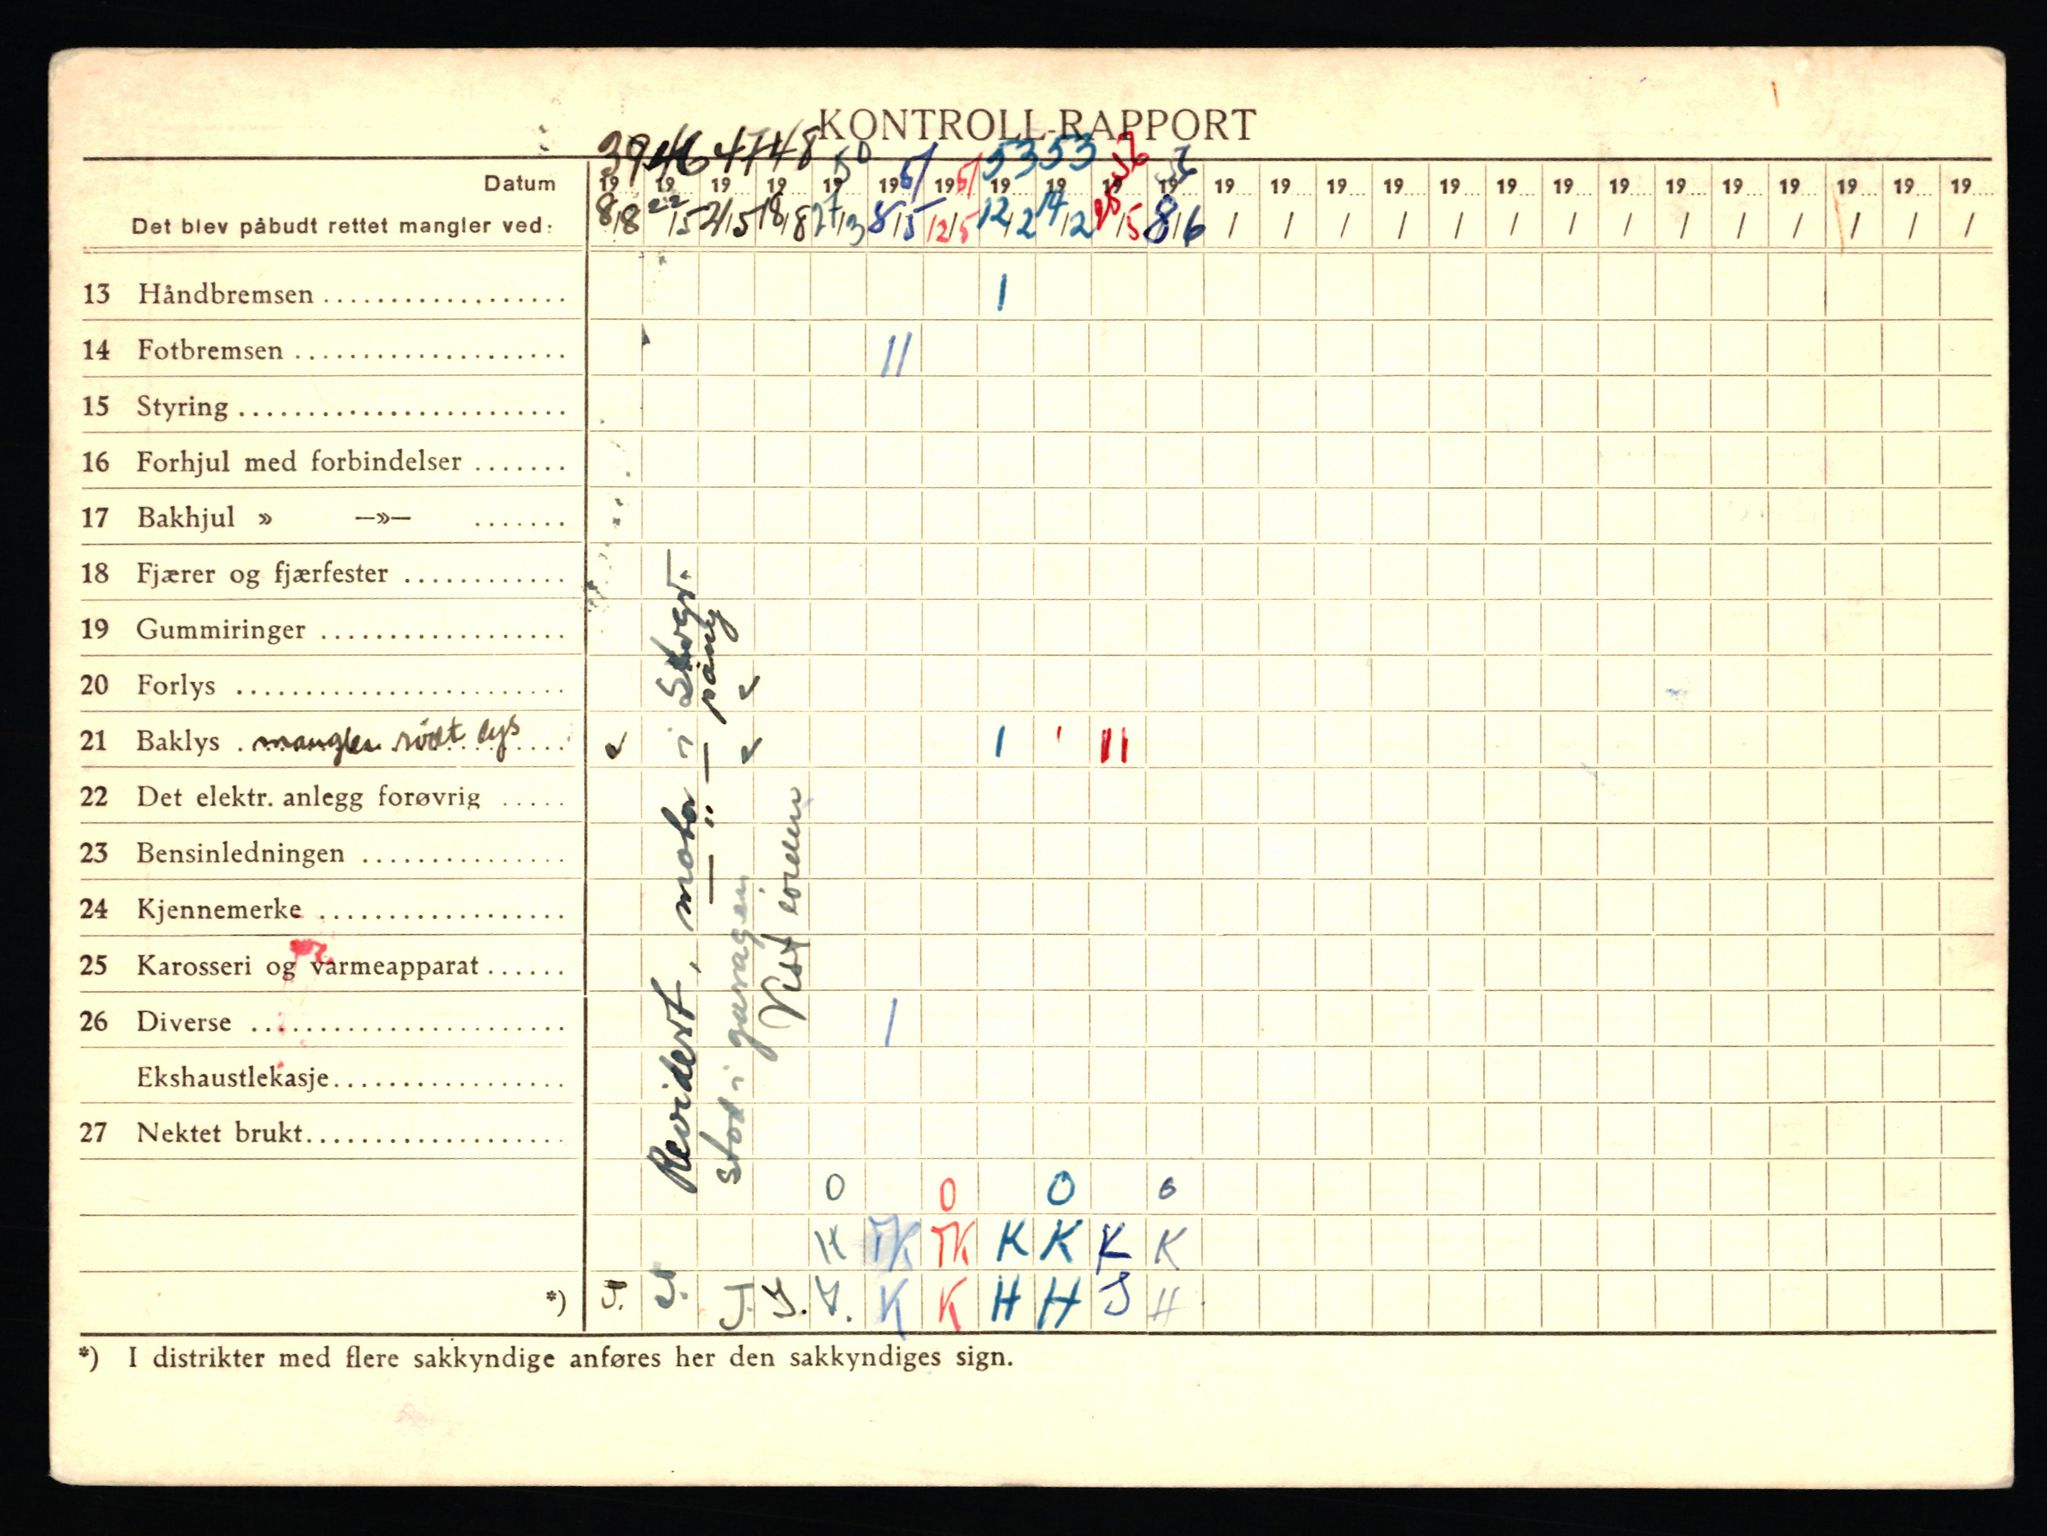 KONTROLL-RAPPORT
39 46 47 48 50 51 51 53 53
Datum 19 19 19 19 19 19 19 19 19 19 19 19 19 19 19 19 19 19 19 19 19 19 19 19 19
Det blev påbudt rettet mangler ved: 8/8 22/5 21/5 18/8 27/3 8/5 12/5 12/2 14/2 28/5 8/6 / / / / / / / / / / / / / /
13 Håndbremsen .................. 1
14 Fotbremsen .................... 11
15 Styring ........................
16 Forhjul med forbindelser .......
17 Bakhjul » —»— .......
18 Fjærer og fjærfester ............
19 Gummiringer ..................
20 Forlys ........................
21 Baklys . mangler rødt lys 1 ' 11
22 Det elektr. anlegg forøvrig .....
23 Bensinledningen ...............
24 Kjennemerke ..................
25 Karosseri og varmeapparat ......
26 Diverse ....................... 1
Ekshaustlekasje.................
27 Nektet brukt...................
Revidert, motor i
— " —
stod i garagen
Vist iorden
0 0 0 0
H TK TK K K K K
*) J. J. J. J. J. K K H H J H
*) I distrikter med flere sakkyndige anføres her den sakkyndiges sign.